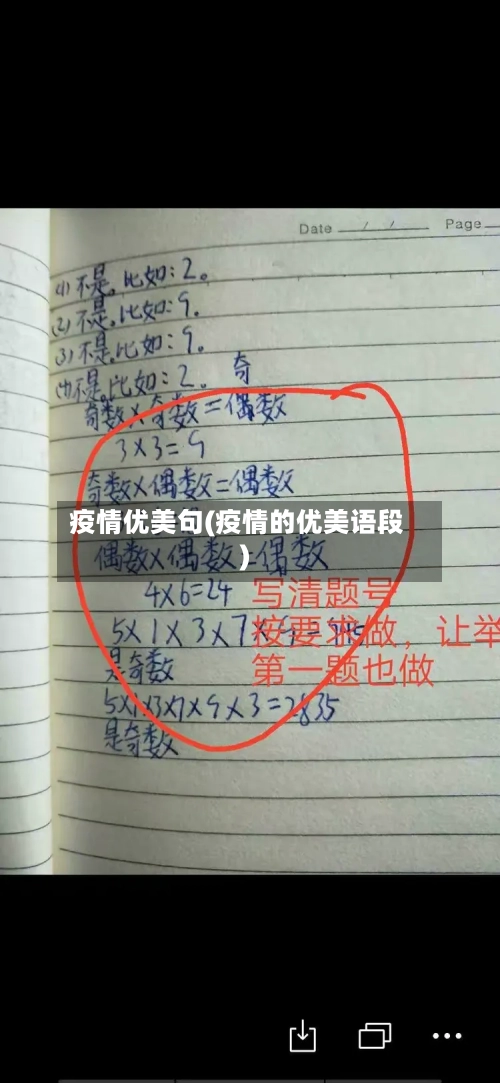 Date / / Page
(1)不是。比如:2。
(2)不是。比如:9.
(3)不是。比如:9。
(4)不是。比如:2。奇
奇数×奇数=偶数
3×3=9
奇数×偶数=偶数
疫情优美句(疫情的优美语段
)
偶数×偶数=偶数
4×6=24
写清题号
5×1×3×7×
按要求做，让举
是奇数
第一题也做
5×1×3×7×9×3=2835
是奇数